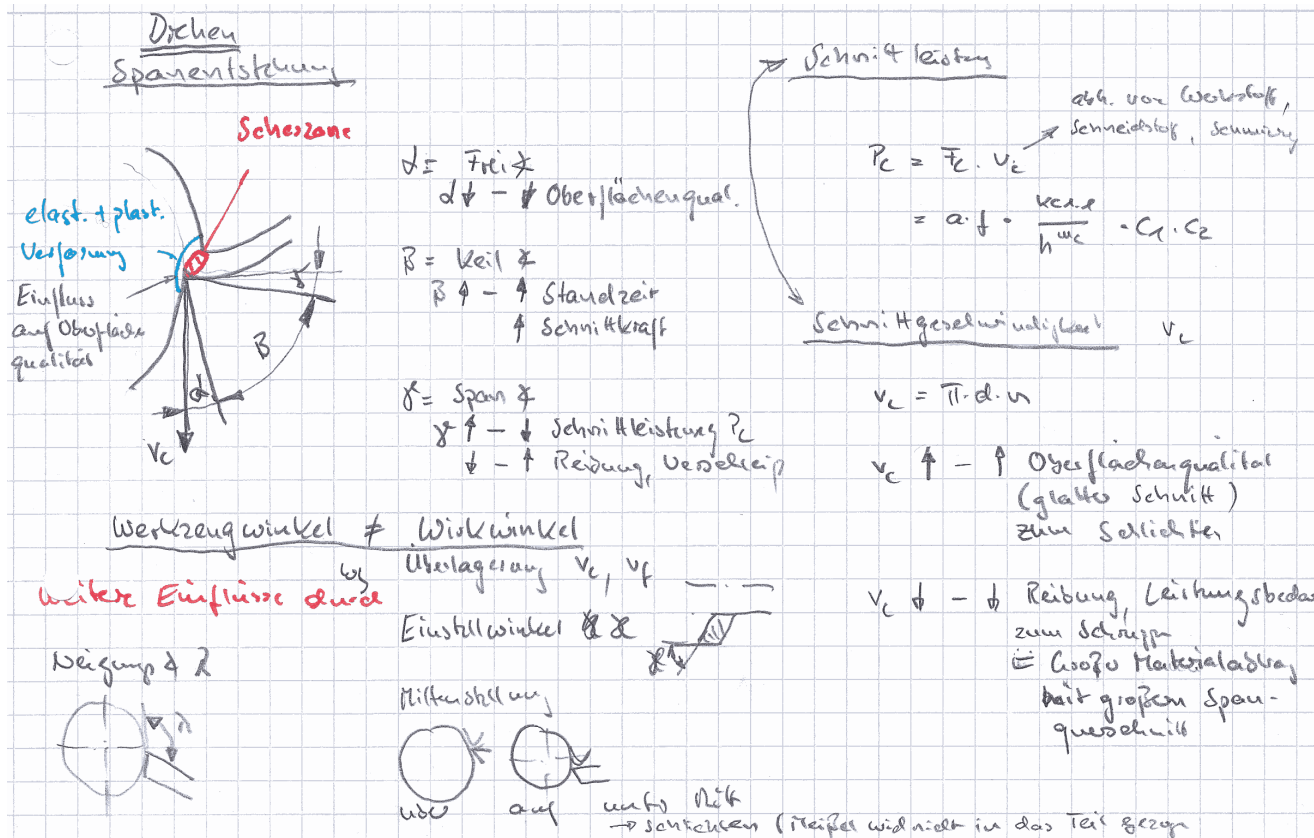 Drehen
Spanentstehung
Scherzone
elast. + plast.
Verformung
Einfluss
auf Oberfläche
qualität
γ
β
α
v_c
α = Frei ∡
α ↓ – ↓ Oberflächenqual.
β = Keil ∡
β ↑ – ↑ Standzeit
↑ Schnittkraft
γ = Span ∡
γ ↑ – ↓ Schnittleistung P_c
↓ – ↑ Reibung, Verschleiß
Werkzeugwinkel ≠ Wirkwinkel
Überlagerung v_c, v_f
weitere Einflüsse durch
Einstellwinkel ϰ
ϰ
Neigungs ∡ λ
λ
Mittenstellung
über auf unter Mitte
→ schlichten (Meißel wird nicht in das Teil gezogen
Schnittleistung
abh. von Werkstoff,
Schneidstoff, Schmierung
P_c = F_c · v_c
= a · f · k_c1.1 / h^m_c · C_1 · C_2
Schnittgeschwindigkeit v_c
v_c = π · d · n
v_c ↑ – ↑ Oberflächenqualität
(glatter Schnitt)
zum Schlichten
v_c ↓ – ↓ Reibung, Leistungsbedar
zum Schruppen
= Großer Materialabtrag
mit großem Span-
querschnitt